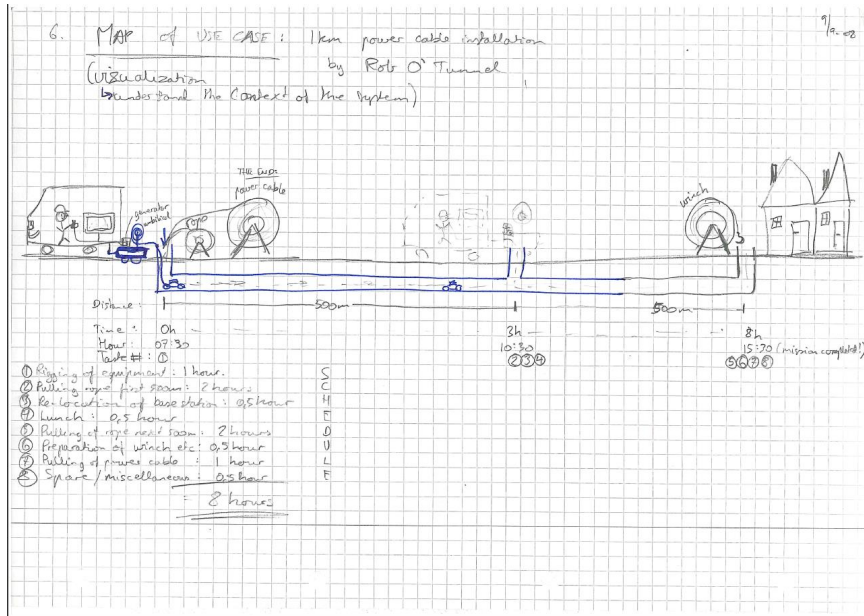 6. MAP of USE CASE: 1km power cable installation
9/9-02
(vizualization
by Rob O'Tunnel
↳understand the context of the system)
THE END:
power cable
generator
umbilical
rope
winch
Distance:
500m
500m
Time: 0h
3h
8h
Hour: 07:30
10:30
15:30 (mission completed!)
Task #: ①
②③④
⑤⑥⑦⑧
① Rigging of equipment: 1 hour.
② Pulling rope first 500m: 2 hours
③ Re-location of base station: 0,5 hour
④ Lunch: 0,5 hour
⑤ Pulling of rope next 500m: 2 hours
⑥ Preparation of winch etc: 0,5 hour
⑦ Pulling of power cable: 1 hour
⑧ Spare/miscellaneous: 0,5 hour
= 8 hours
S
C
H
E
D
U
L
E